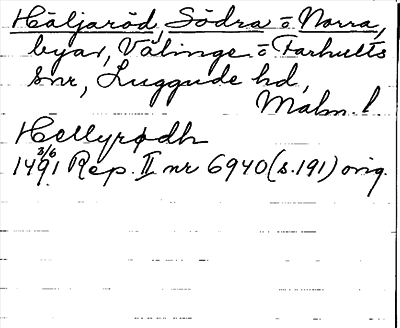 Häljaröd, Södra o Norra,
byar, Välinge o Farhults
snr, Luggude hd,
Malm. l
Hellyrødh
3/6
1491 Rep. II nr 6940 (s. 191) orig.